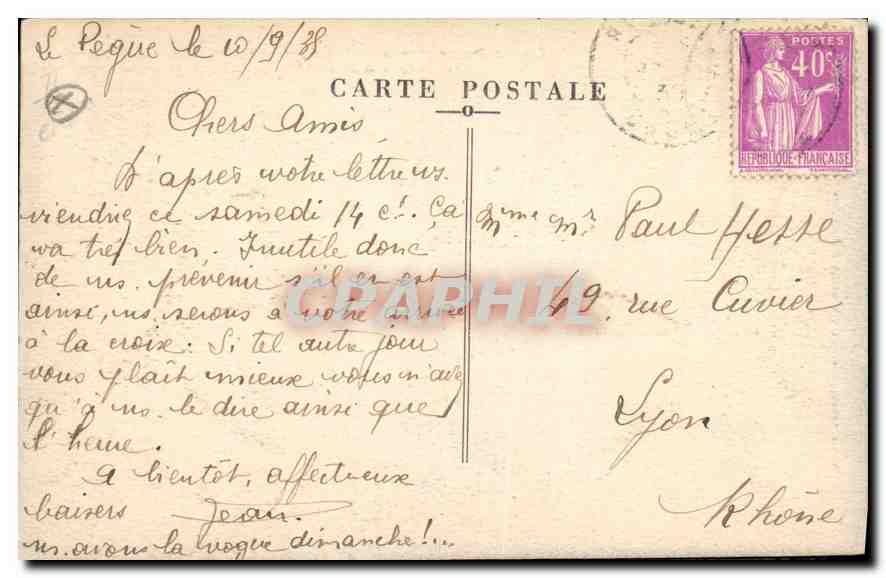 Le Pègue le 10/9/38
CARTE POSTALE
POSTES
40c
REPUBLIQUE-FRANÇAISE
Chers amis
D'après votre lettre vs.
viendrez ce samedi 14 ct. Ça
va très bien. Inutile donc
de ns. prévenir s'il en est
ainsi, ns. serons à votre arrivée
à la croix. Si tel autre jour
vous plaît mieux vous n'avez
qu'à ns. le dire ainsi que
l'heure.
A bientôt, affectueux
baisers Jean.
ns. avons la vogue dimanche!...
Mme Mr Paul Hesse
69, rue Cuvier
Lyon
Rhône
CPAPHIL